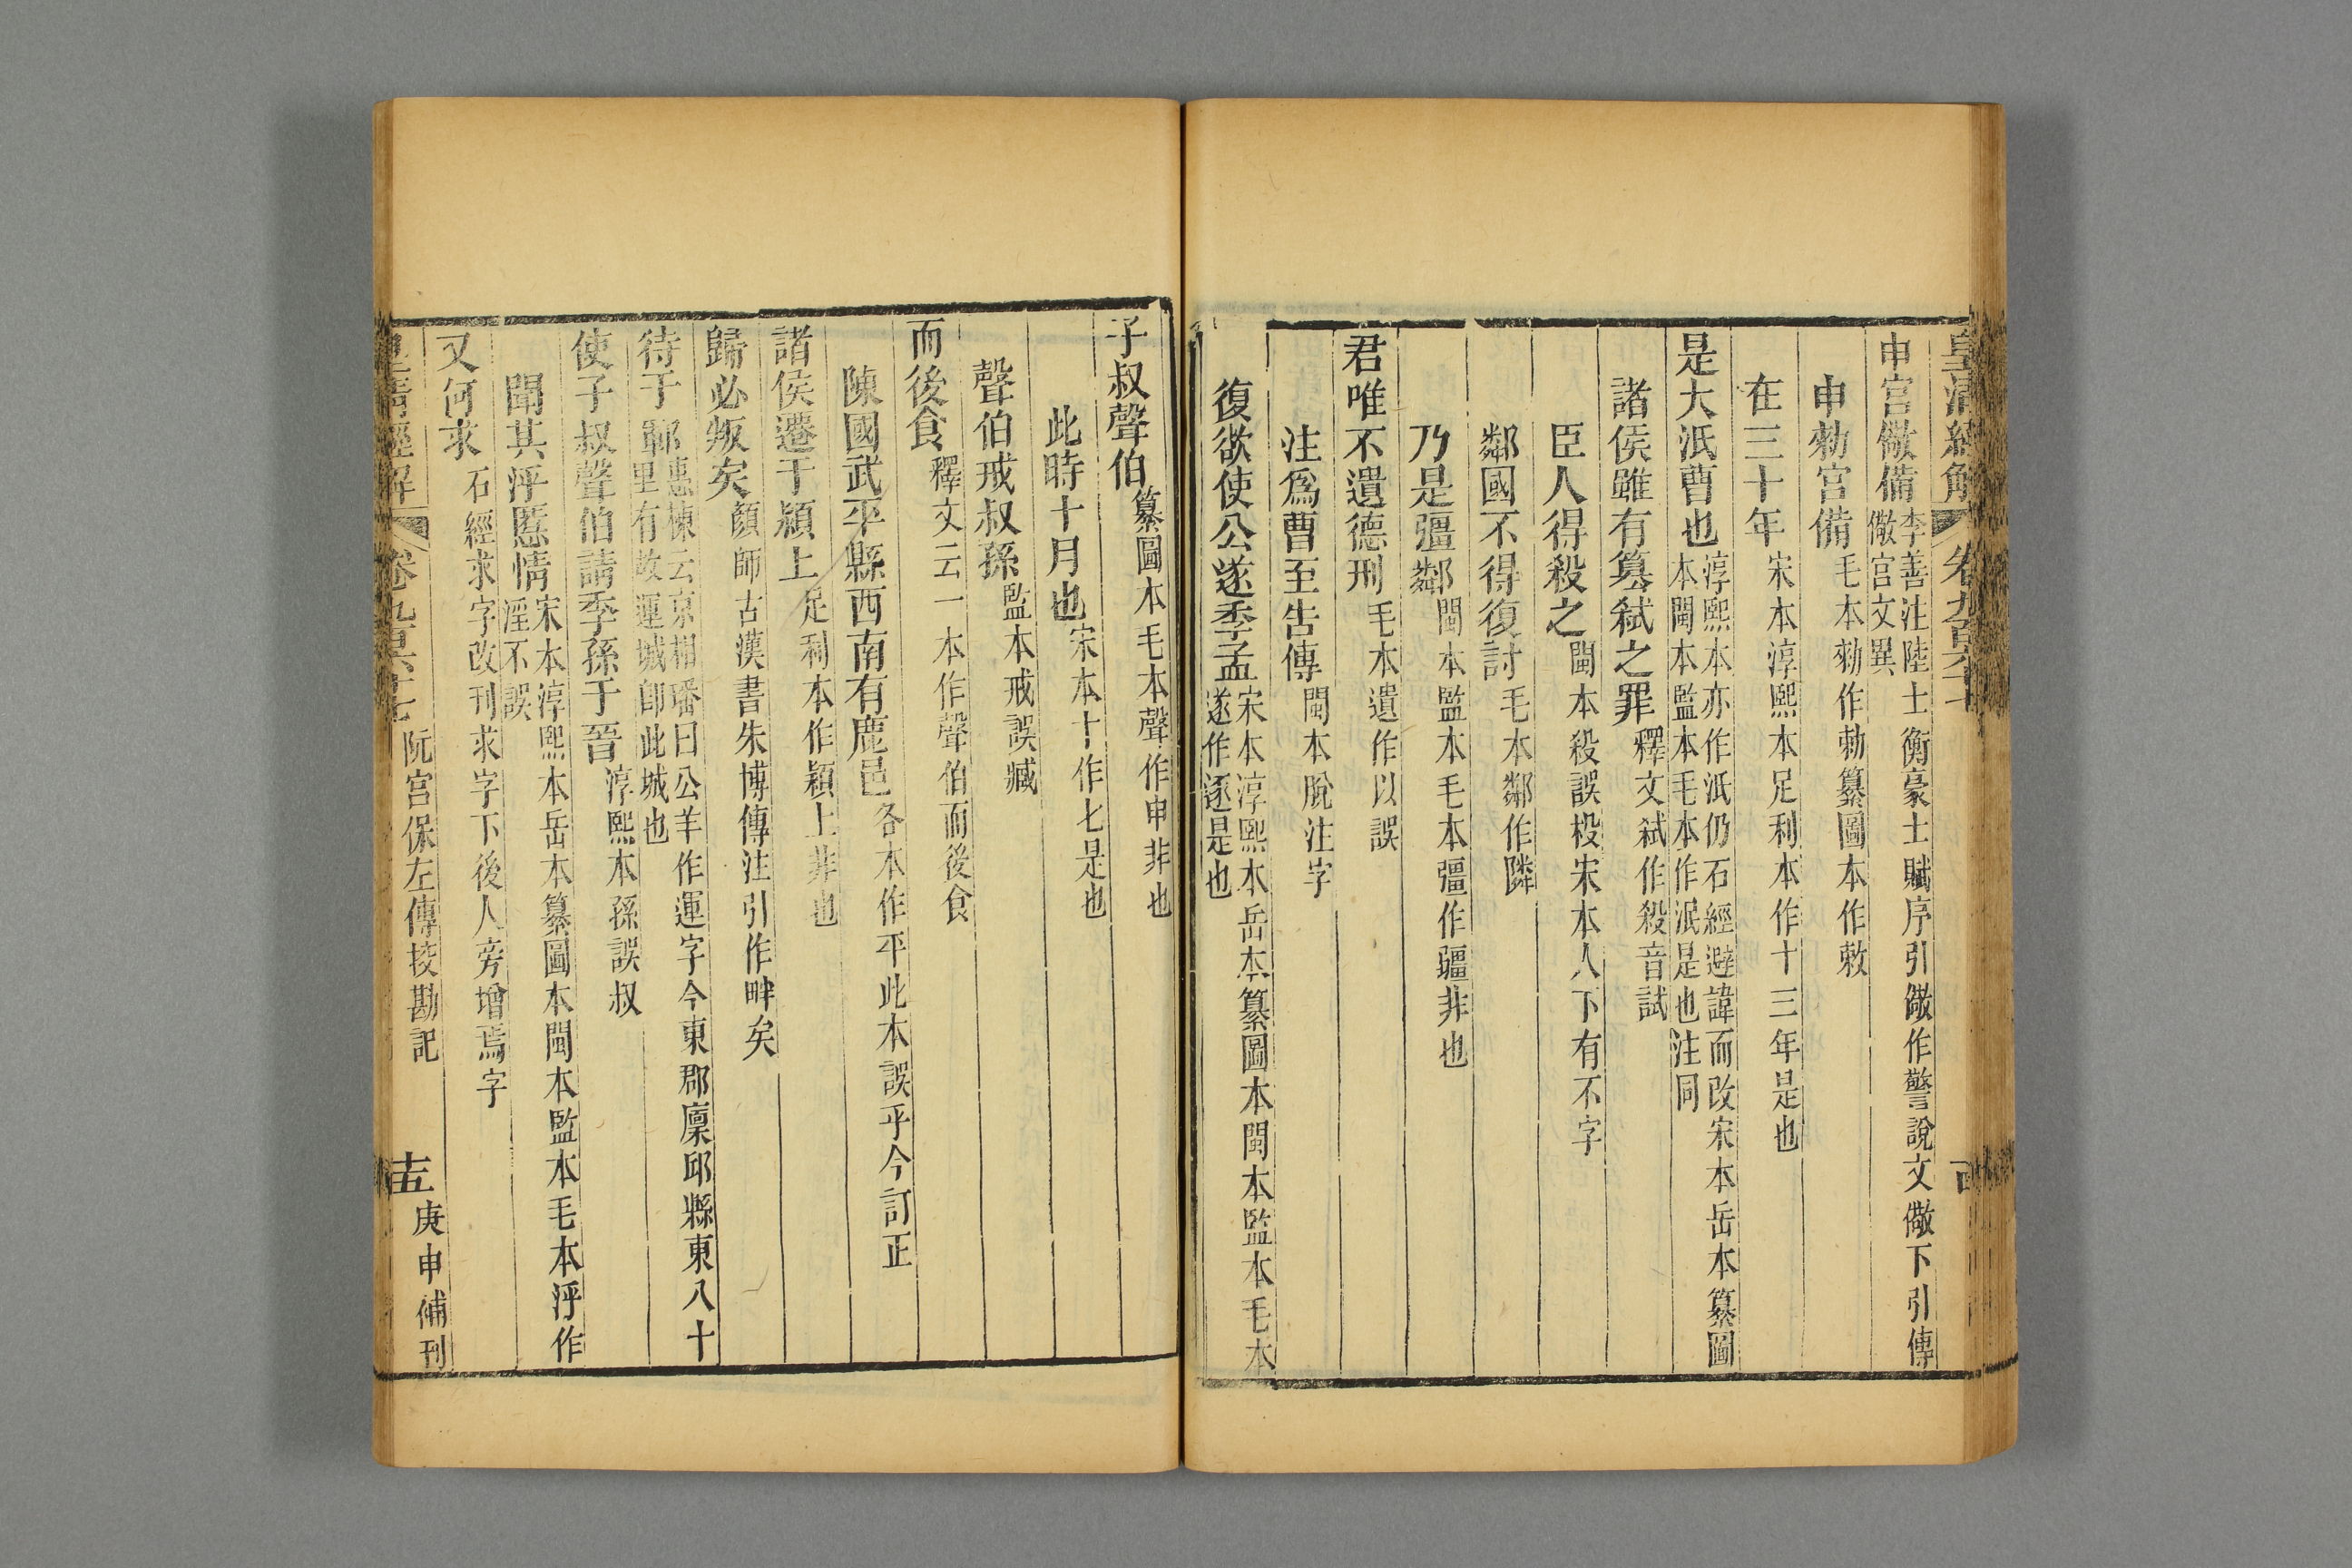 皇清經解 卷九百六十
申宮儆備李善注陸士衡豪士賦序引儆作警說文儆下引傳
儆宮文異
申勑宮備毛本勑作勅纂圖本作敕
在三十年宋本淳熙本足利本作十三年是也
是大泜曹也淳熙本亦作泜仍石經避諱而改宋本岳本纂圖
本閩本監本毛本作泯是也注同
諸侯雖有篡弒之罪釋文弒作殺音試
臣人得殺之閩本殺誤杸宋本人下有不字
鄰國不得復討毛本鄰作隣
乃是彊鄰閩本監本毛本彊作疆非也
君唯不遺德刑毛本遺作以誤
注爲曹至告傳閩本脫注字
復欲使公遂季孟宋本淳熙本岳本纂圖本閩本監本毛本
遂作逐是也
子叔聲伯纂圖本毛本聲作申非也
此時十月也宋本十作七是也
聲伯戒叔孫監本戒誤臧
而後食釋文云一本作聲伯而後食
陳國武平縣西南有鹿邑各本作平此本誤乎今訂正
諸侯遷于潁上足利本作穎上非也
歸必叛矣顏師古漢書朱博傳注引作畔矣
待于鄆惠棟云京相璠曰公羊作運字今東郡廩邱縣東八十
里有故運城卽此城也
使子叔聲伯請季孫于晉淳熙本孫誤叔
聞其泘慝情宋本淳熙本岳本纂圖本閩本監本毛本泘作
淫不誤
又何求石經求字改刊求字下後人旁增焉字
皇清經解 卷九百六十七 阮宮保左傳挍勘記 十五 庚申補刊